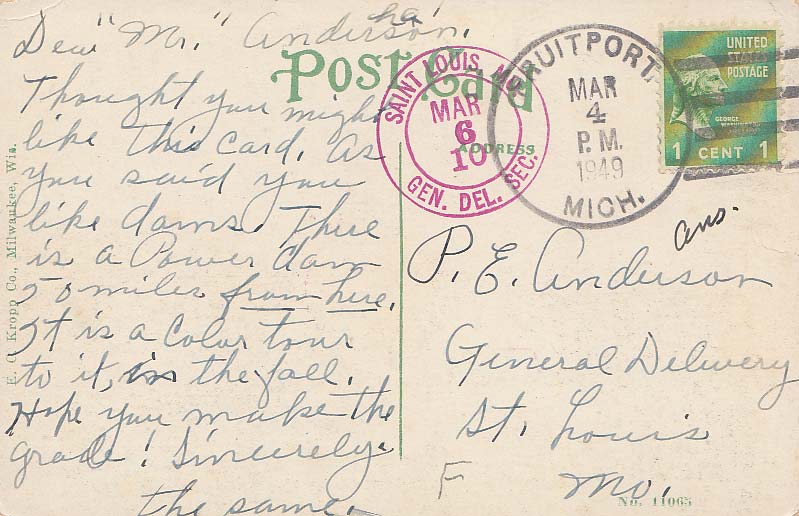 ha
Dear "Mr." Anderson.
Post Card
Thought you might
like this card. As
you said you
like dams. There
is a Power dam
50 miles from here.
It is a Color tour
to it, in the fall.
Hope you make the
grade! Sincerely.
the same.
E. C. Kropp Co., Milwaukee, Wis.
SAINT LOUIS, MO.
MAR
6
10
GEN. DEL. SEC.
ADDRESS
FRUITPORT,
MAR
4
P.M.
1949
MICH.
UNITED
STATES
POSTAGE
GEORGE
WASHINGTON
1 CENT 1
ans.
P. E. Anderson
General Delivery
St. Louis
Mo.
F
No. 11065